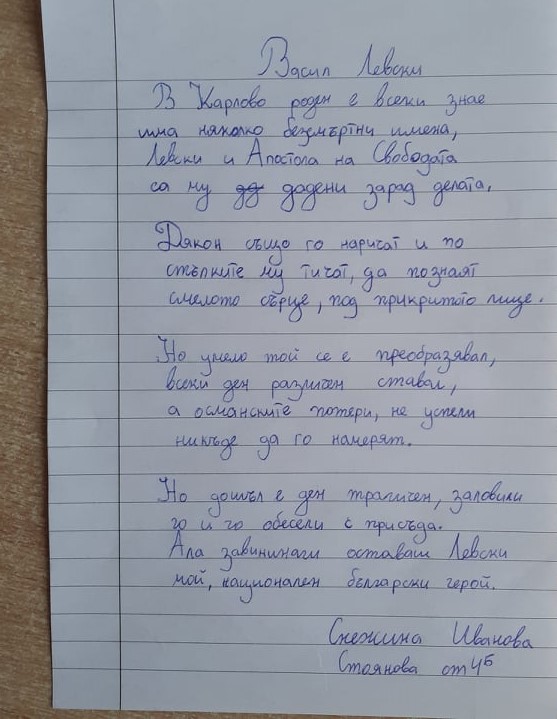 Васил Левски
В Карлово роден е всеки знае
има няколко безсмъртни имена,
Левски и Апостола на Свободата
са му дадени зарад делата.
Дякон също го наричат и по
стъпките му тичат, да познаят
смелото сърце, под прикритото лице.
Но умело той се е преобразявал,
всеки ден различен ставал,
а османските потери, не успели
никъде да го намерят.
Но дошъл е ден трагичен, заловили
го и го обесели с присъда.
Ала завининаги оставаш Левски
мой, национален български герой.
Снежина Иванова
Стоянова от 4б